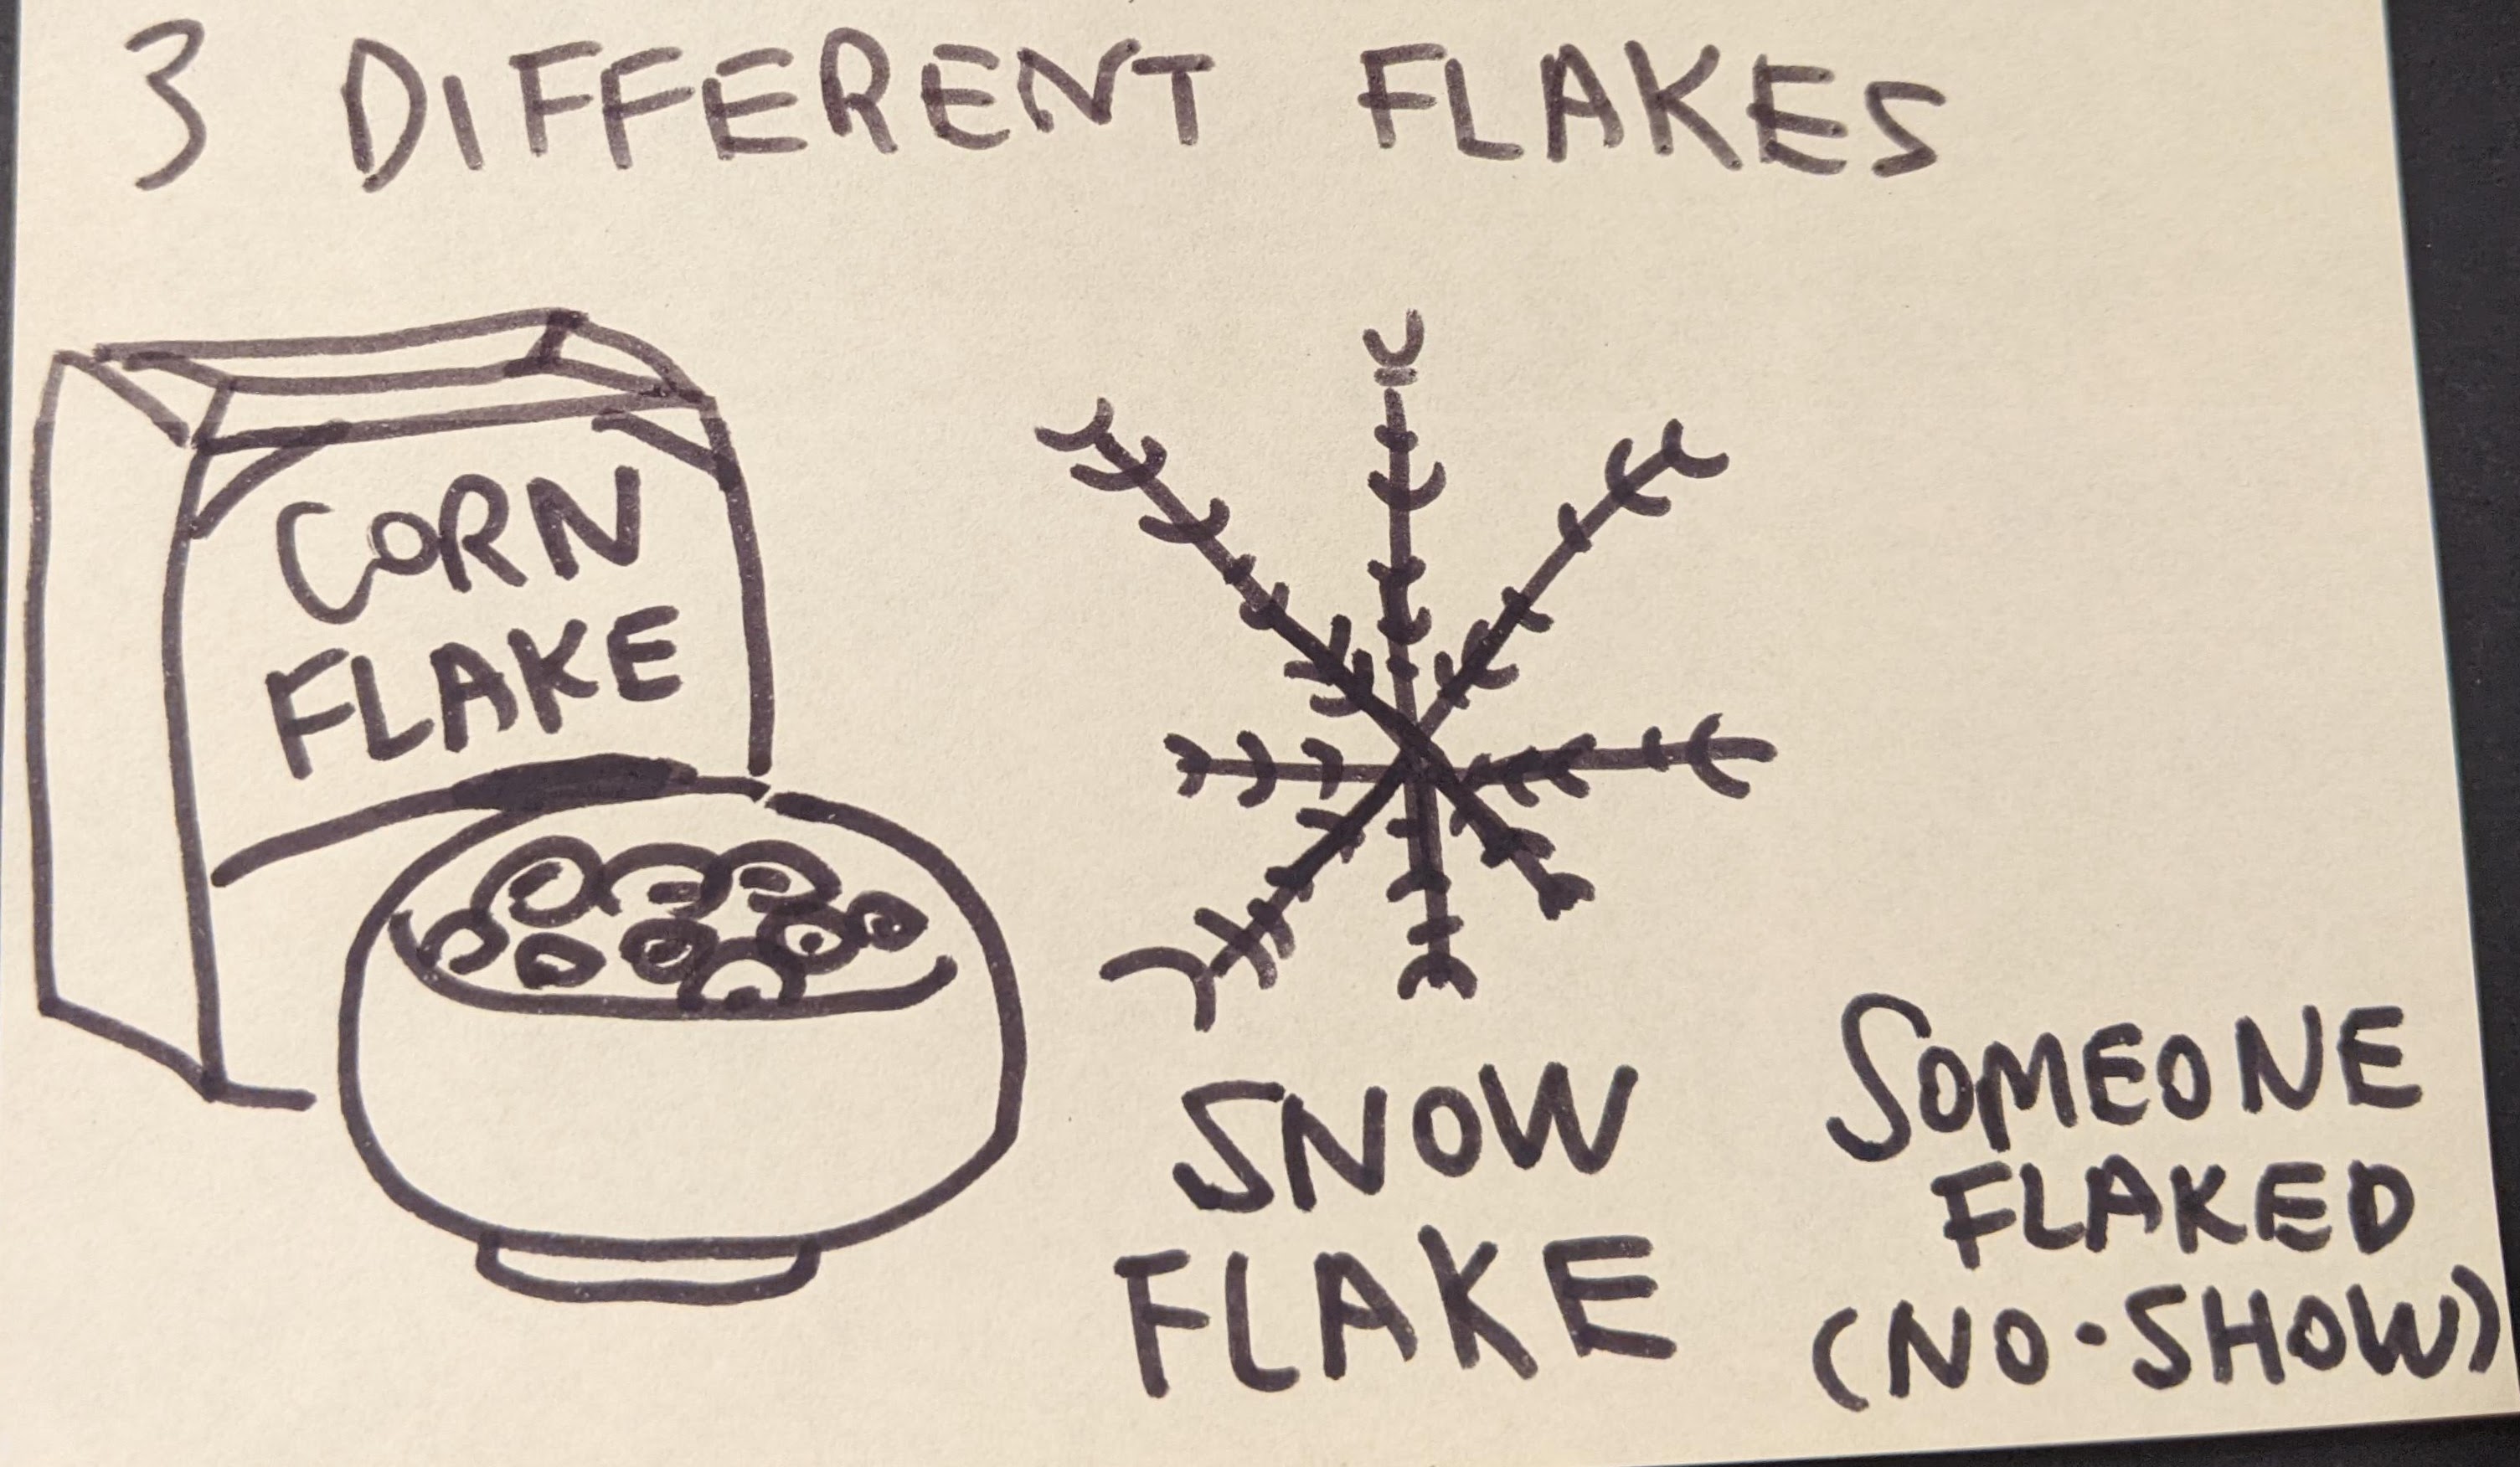 3 DIFFERENT FLAKES
CORN
FLAKE
SNOW
FLAKE
SOMEONE
FLAKED
(NO-SHOW)